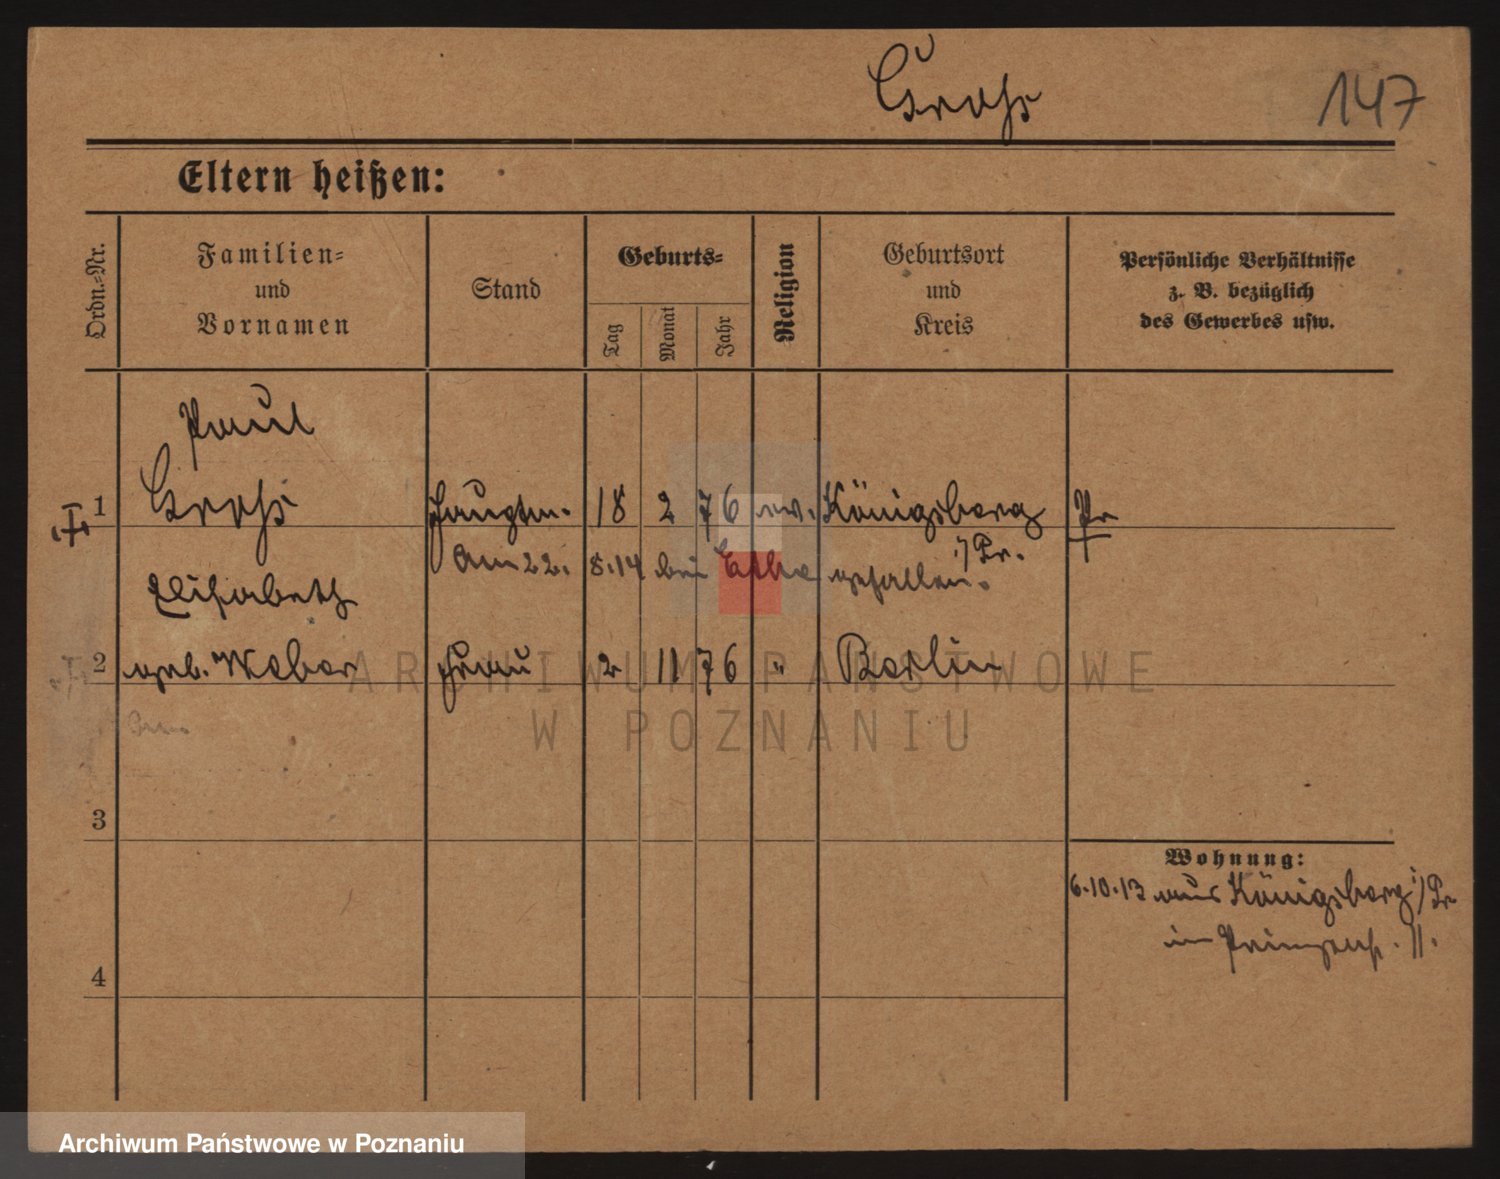 Groß 147
Eltern heißen:
Ordn.-Nr.
Familien-
und
Vornamen
Stand
Geburts-
Tag
Monat
Jahr
Religion
Geburtsort
und
Kreis
Persönliche Verhältnisse
z. B. bezüglich
des Gewerbes usw.
Paul
1 Groß Hauptm. 18 2 76 ev. Königsberg Pr
i/Pr.
am 22. 8.14 bei gefallen.
Elisabeth
2 geb. Weber Frau 2 11 76 " Berlin
3
Wohnung:
6.10.13 aus Königsberg i/Pr
in Prinzenst. 11.
4
ARCHIWUM PAŃSTWOWE
W POZNANIU
Archiwum Państwowe w Poznaniu